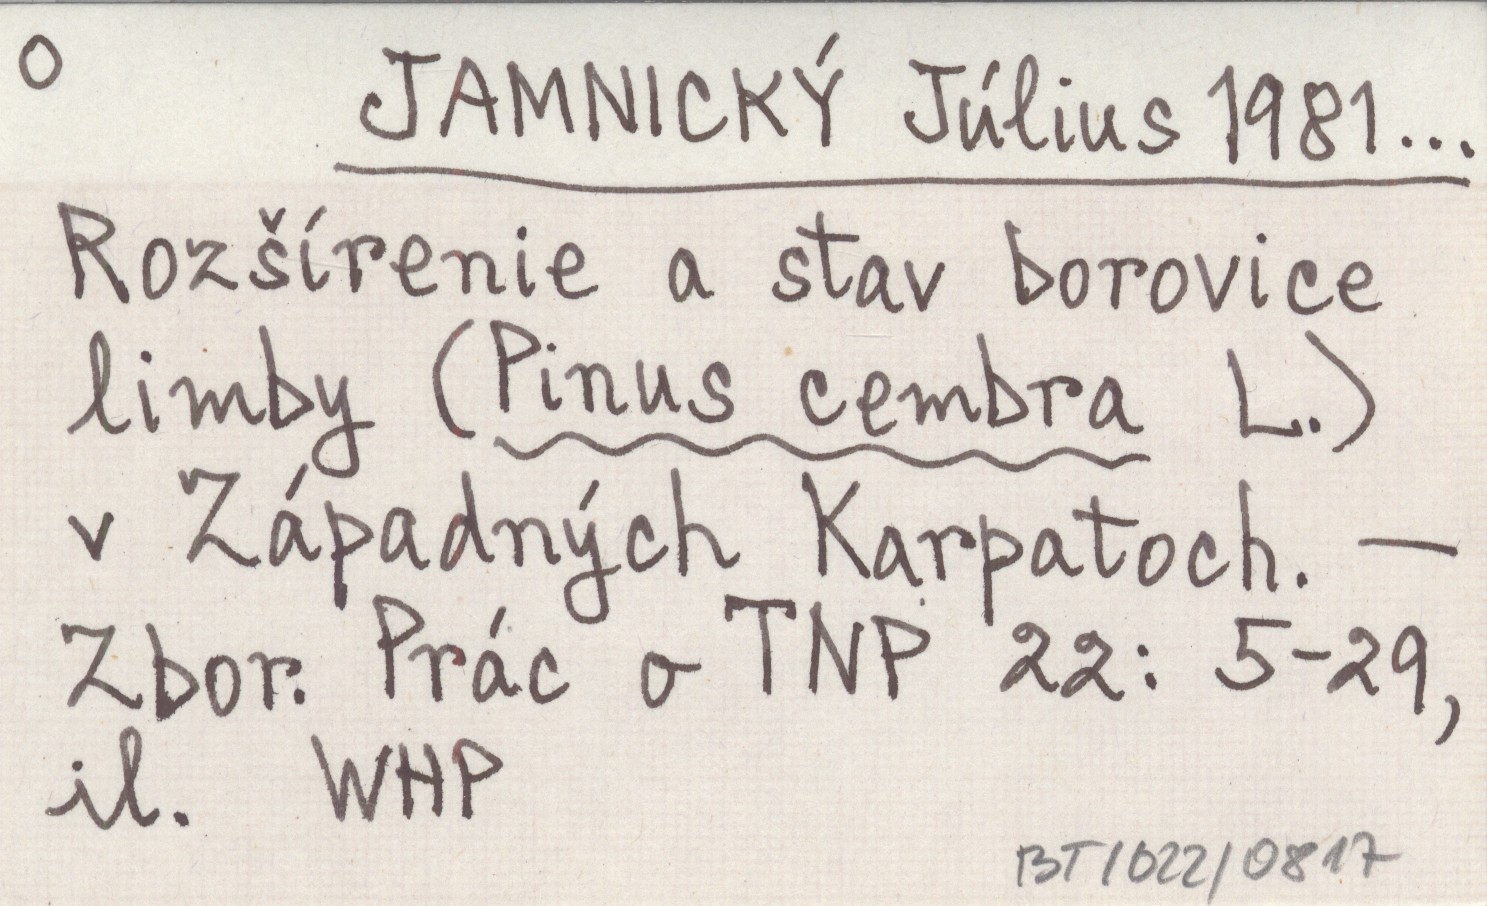 O JAMNICKÝ Július 1981...
Rozšírenie a stav borovice
limby (Pinus cembra L.)
v Západných Karpatoch. —
Zbor. Prác o TNP 22: 5-29,
il. WHP
BT/022/0817